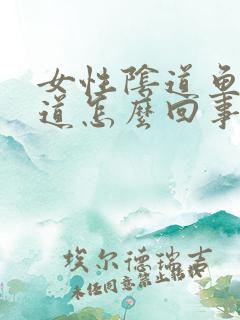 女性陰道魚
道怎麼回事
埃尔德瑞吉
未经同意禁止转扒